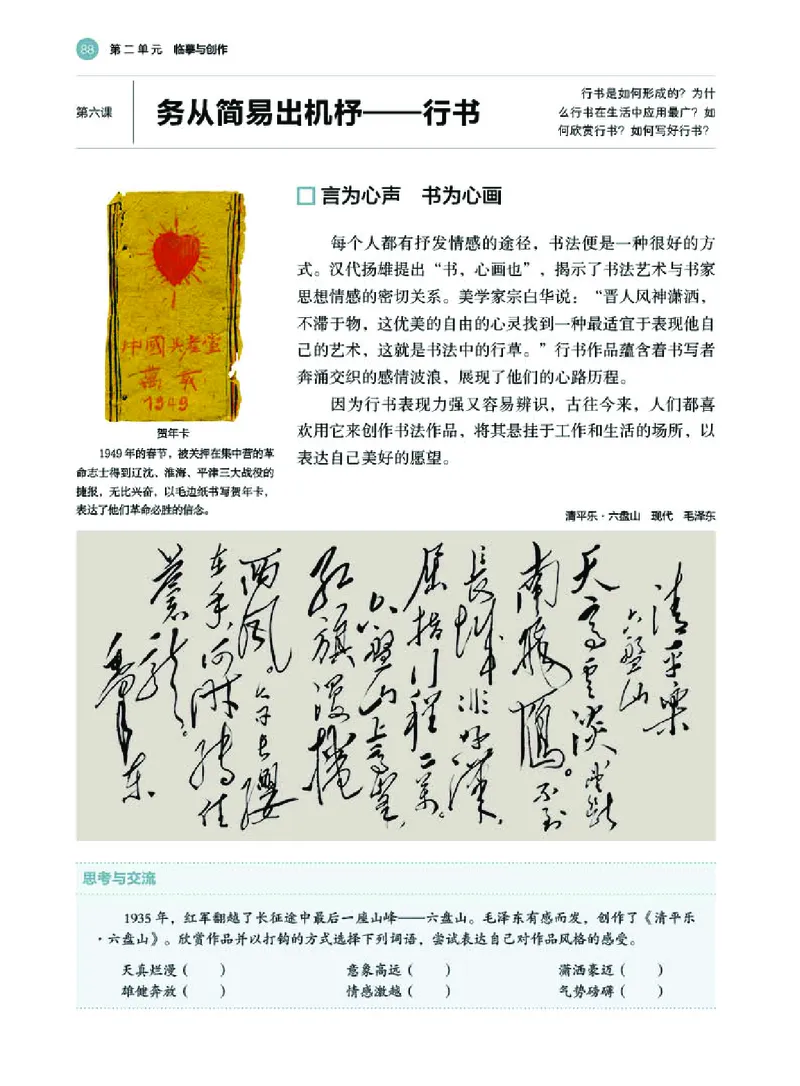 88 第二单元 临摹与创作
第六课
务从简易出机杼——行书
行书是如何形成的？为什
么行书在生活中应用最广？如
何欣赏行书？如何写好行书？
言为心声 书为心画
每个人都有抒发情感的途径，书法便是一种很好的方
式。汉代扬雄提出“书，心画也”，揭示了书法艺术与书家
思想情感的密切关系。美学家宗白华说：“晋人风神潇洒，
不滞于物，这优美的自由的心灵找到一种最适宜于表现他自
己的艺术，这就是书法中的行草。”行书作品蕴含着书写者
奔涌交织的感情波浪，展现了他们的心路历程。
因为行书表现力强又容易辨识，古往今来，人们都喜
欢用它来创作书法作品，将其悬挂于工作和生活的场所，以
表达自己美好的愿望。
中國共產黨
萬歲
1949
贺年卡
1949年的春节，被关押在集中营的革
命志士得到辽沈、淮海、平津三大战役的
捷报，无比兴奋，以毛边纸书写贺年卡，
表达了他们革命必胜的信念。
清平乐·六盘山 现代 毛泽东
清平樂
六盤山
天高雲淡望斷
南飛雁。不到
長城非好漢，
屈指行程二萬。
六盤山上高峯，
紅旗漫捲
西風。今日長纓
在手，何時縛住
蒼龍。
毛澤东
思考与交流
1935年，红军翻越了长征途中最后一座山峰——六盘山。毛泽东有感而发，创作了《清平乐
·六盘山》。欣赏作品并以打钩的方式选择下列词语，尝试表达自己对作品风格的感受。
天真烂漫（ ） 意象高远（ ） 潇洒豪迈（ ）
雄健奔放（ ） 情感激越（ ） 气势磅礴（ ）